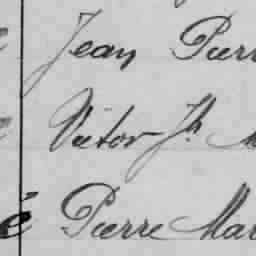 Jean Pierr
Victor Jh M
é Pierre Mar